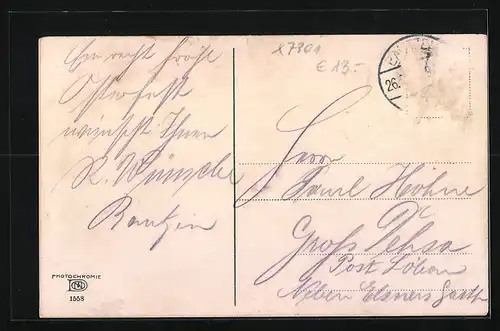 Ein recht frohes
Osterfest
wünscht Ihnen
R. Wünsche
Bautzen
17301
€ 13.-
BAUTZEN
26
Herrn
Paul Höhne
Groß Dehsa
Post Löbau
Neben Elsners Gasth.
PHOTOCHROMIE
1558